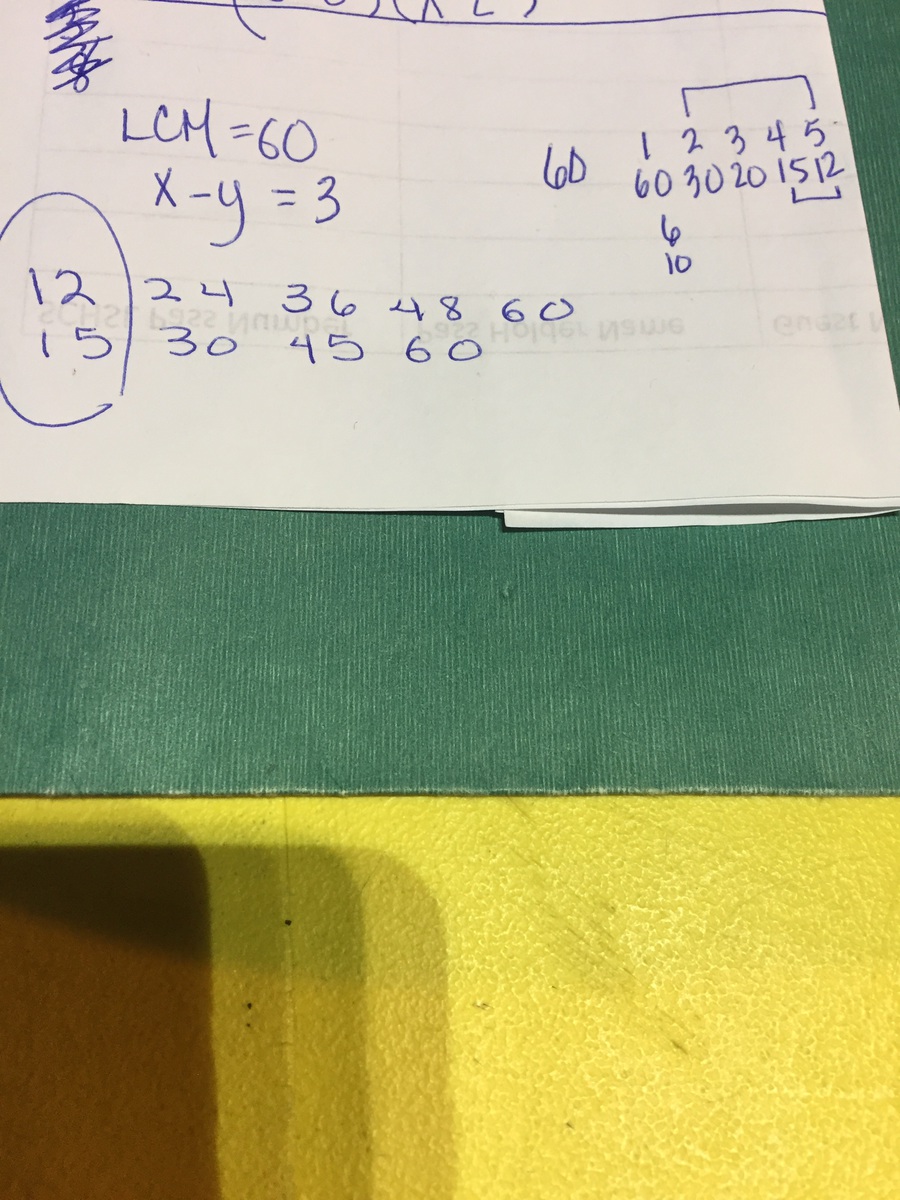 LCM = 60
x - y = 3
60
1 2 3 4 5
60 30 20 15 12
6
10
12 24 36 48 60
15 30 45 60
SCHSE Pass Number Pass Holder Name Guest N